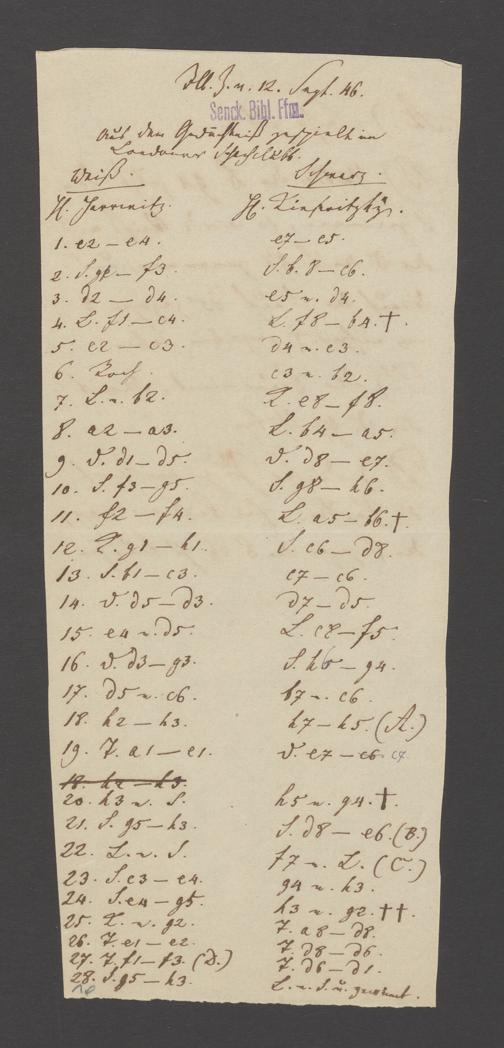 Ill. Z. v. 12. Sept. 46.
Senck. Bibl. Ffm.
Aus dem Gedächtniß gespielt im
Londoner Schachclubb.
Weiß. Schwarz.
H. Harrwitz. H. Kieseritzky.
1. e2 — e4. e7 — e5.
2. S. g1 — f3. S. b. 8 — c6.
3. d2 — d4. e5 n. d4.
4. L. f1 — c4. L. f8 — b4. †
5. c2 — c3. d4 n. c3.
6. Roch. c3 n. b2.
7. L. n. b2. K. e8 — f8.
8. a2 — a3. L. b4 — a5.
9. D. d1 — d5. D. d8 — e7.
10. S. f3 — g5. S. g8 — h6.
11. f2 — f4. L. a5 — b6. †
12. K. g1 — h1. S. c6 — d8.
13. S. b1 — c3. c7 — c6.
14. D. d5 — d3. d7 — d5.
15. e4 n. d5. L. c8 — f5.
16. D. d3 — g3. S. h6 — g4.
17. d5 n. c6. b7 n. c6.
18. h2 — h3. h7 — h5. (A.)
19. T. a1 — e1. D. e7 — c7
18. h2 — h3.
20. h3 n. S. h5 n. g4. †
21. S. g5 — h3. S. d8 — e6. (B.)
22. L. n. S. f7 n. L. (C.)
23. S. c3 — e4. g4 n. h3.
24. S. e4 — g5. h3 n. g2. ††
25. K. n. g2. T. a8 — d8.
26. T. e1 — e2. T. d8 — d6.
27. T. f1 — f3. (D.) T. d6 — d1.
28. S. g5 — h3. L. n. S. u. gewinnt.